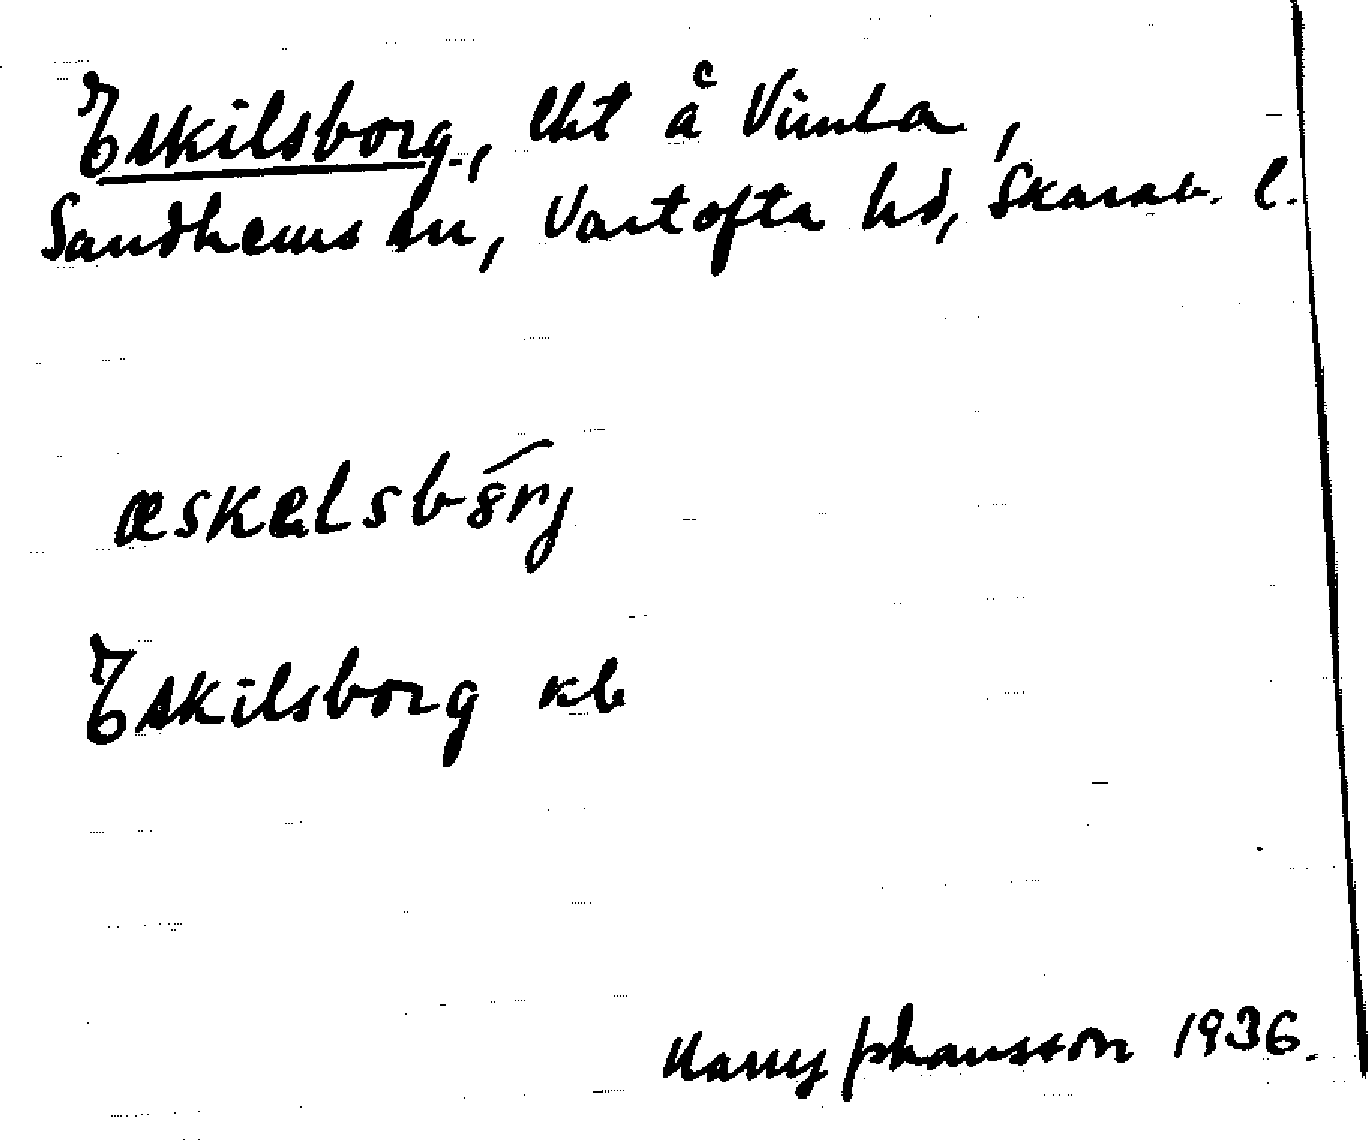 Eskilsborg, lht å Vimla,
Sandhems sn, Vartofta hd, Skarab. l.
æskelsbo̅rj
Eskilsborg kb
Harry Johansson 1936.